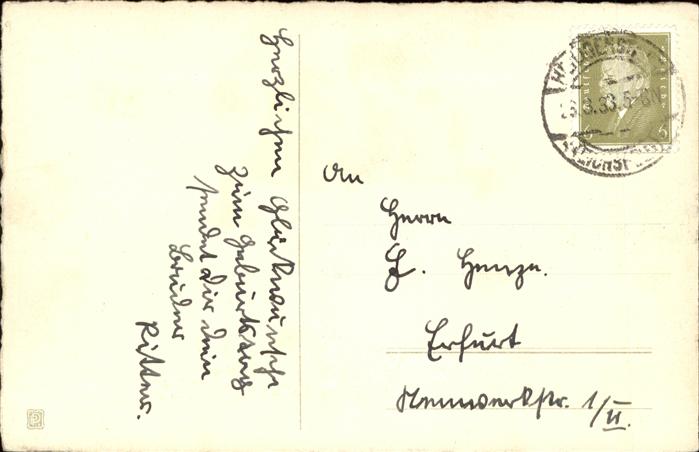 Herzlichen Glückwunsch
zum Geburtstag
sendet Dir dein
Bruder
Ritter.
An
Herrn
H. Henze.
Erfurt
Nonnwerkstr. 1/II.
.3.33.5-6N
6 6